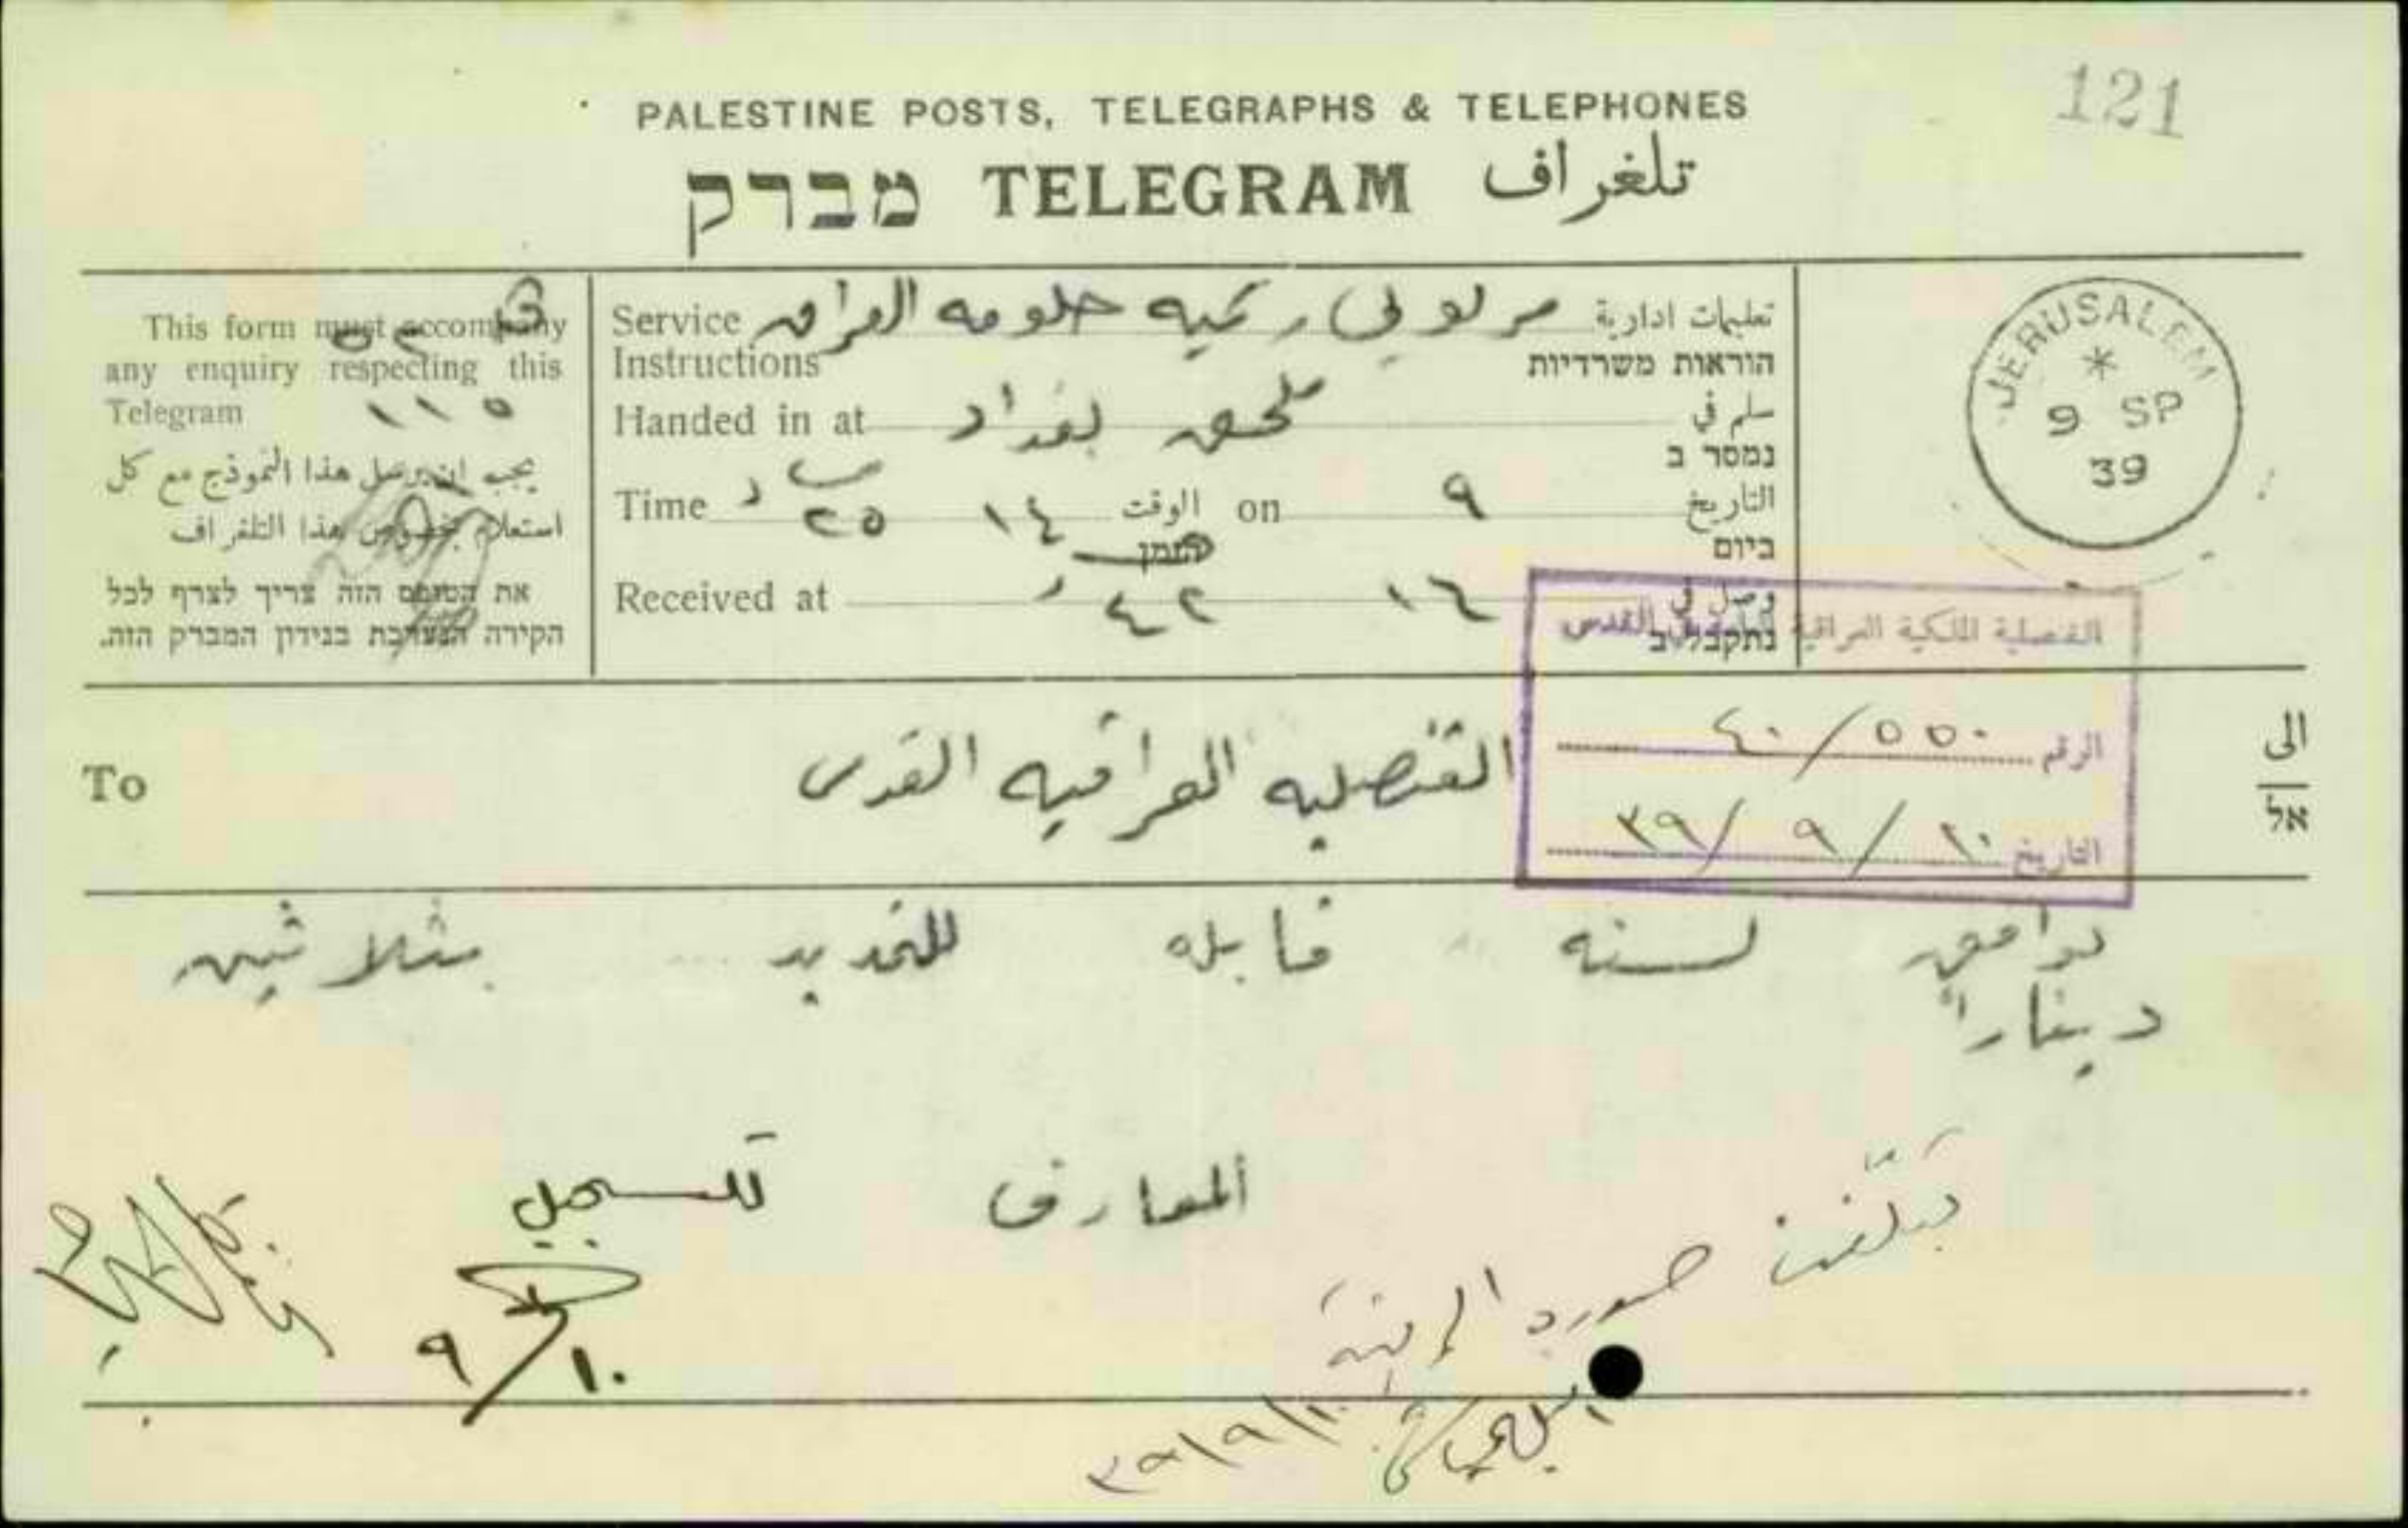 121
PALESTINE POSTS, TELEGRAPHS & TELEPHONES
מברק TELEGRAM تلغراف
This form must accompany
any enquiry respecting this
Telegram
١١٥
يجب ان يرسل هذا النموذج مع كل
استعلام بخصوص هذا التلغراف
את הטופס הזה צריך לצרף לכל
חקירה הנערכת בנידון המברק הזה.
Service Instructions رسميه حكومه العراق تعليمات ادارية
הוראות משרדיות
Handed in at ملحق بغداد سلم في
נמסר ב
Time ٢٥ ١٤ الوقت on ٩ التاريخ
הזמן ביום
Received at ٤٢ ١٦ وصل في
נתקבל ב
JERUSALEM
*
9 SP
39
القنصلية الملكية العراقية القدس
الرقم ٥٥٠/٤٠
التاريخ ١٠/٩/٣٩
To القنصليه العراقيه القدس الى
אל
نوافق لسنه قابله للتمديد بثلاثين
ديناراً
المعارف
للسجل
١٠/٩
تبلغت صورة البرقية
١٠/٩/٣٩